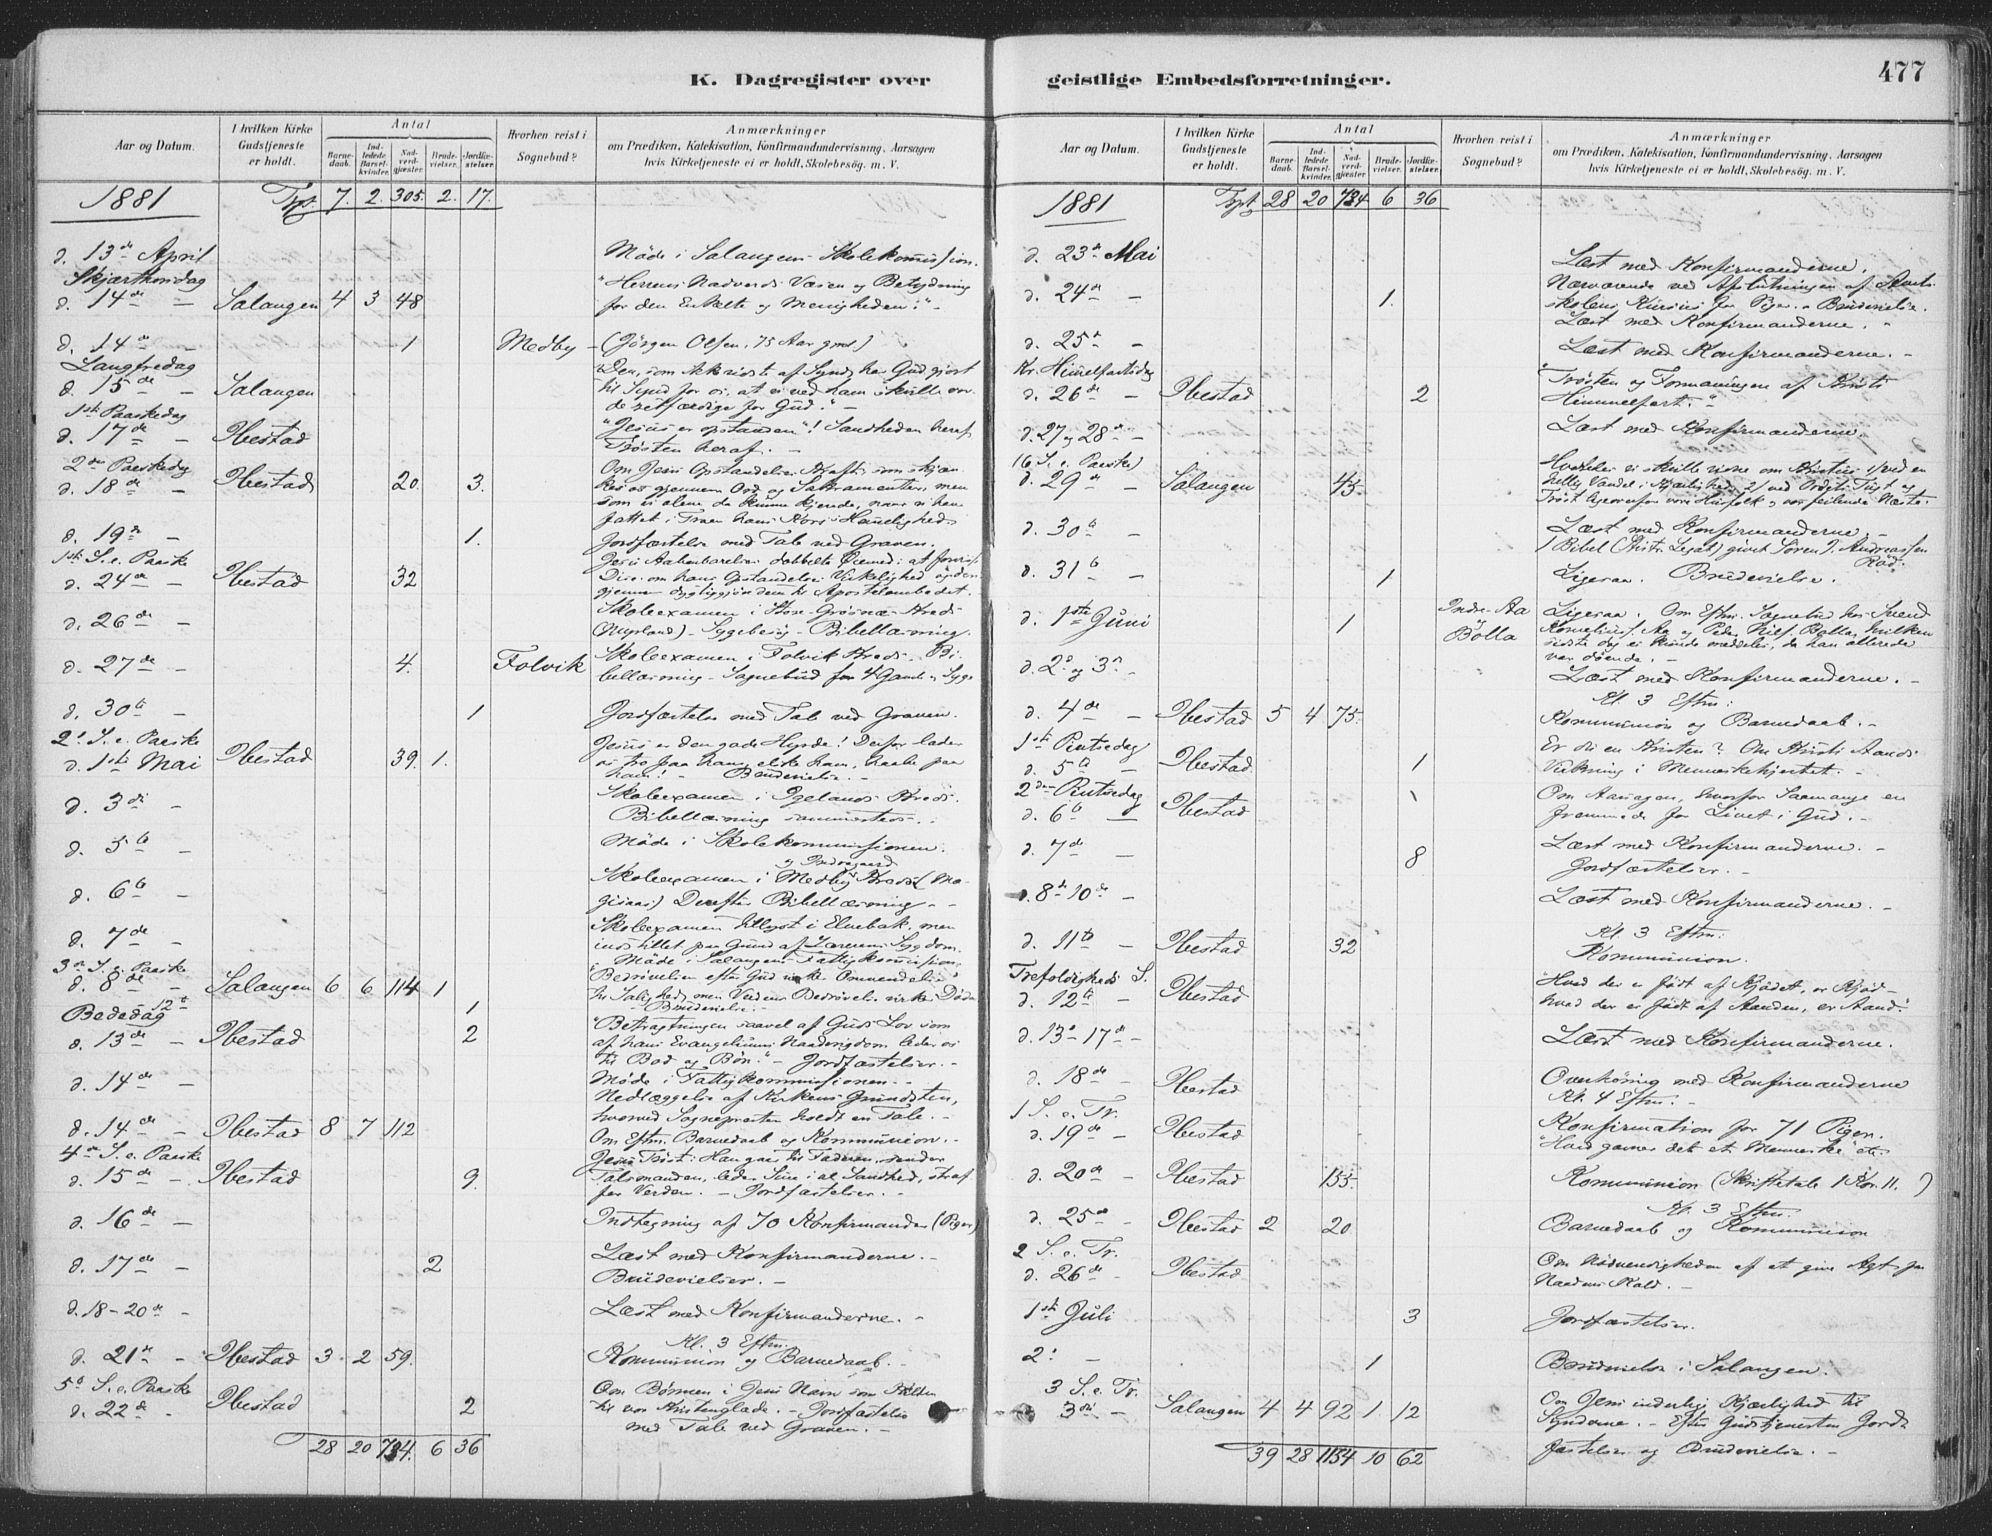 K. Dagregister over geistlige Embedsforretninger. 477
Aar og Datum. I hvilken Kirke Gudstjeneste er holdt. Antal Barnedaab. Indledede Barselkvinder. Nadverdgjæster. Brudevielser. Jordfæstelser. Hvorhen reist i Sognebud? Anmærkninger om Prædiken, Katekisation, Konfirmandundervisning, Aarsagen hvis Kirketjeneste ei er holdt, Skolebesøg. m. V.
1881 Tpt. 7. 2. 305. 2. 17.
d. 13de April Møde i Salangens Skolekommission.
Skjærthorsdag "Herrens Nadverds Væsen og Betydning
d. 14de — Salangen 4 3 48 for den Enkelte og Menigheden." —
d. 14de — 1 Medby — (Jørgen Olsen, 75 Aar gml.)
Langfredag Den, som ikke vidste af Synd, har Gud gjort
d. 15de — Salangen til Synd for os, at vi ved ham skulle vor-
de retfærdige for Gud." —
1ste Paaskedag "Jesus er opstanden"! Sandheden heraf
d. 17de — Ibestad Trøsten heraf. —
2den Paaskedag Om Jesu Opstandelses Kraft
d. 18de — Ibestad 20. 3. kes os gjennem Ord og Sakramenter, men
som vi alene da kunne kjende, naar vi have
fattet i Troen hans Kors's Hemmelighed.
d. 19de — 1. Jordfæstelse med Tale ved Graven.
1ste S. e. Paaske Jesu Aabenbarelses dobbelte Øiemed: at forvisse
d. 24de — Ibestad 32 Disc. om hans Opstandelses Virkelighed og der-
gjennem dygtiggjøre dem til Apostelembedet.
d. 26de — Skoleexamen i Store Grøsnæs Kreds
(Myrland) — Sygebesøg — Bibellæsning.
d. 27de — 4. Folvik Skoleexamen i Folvik Kreds. Bi-
bellæsning — Sognebud for 4 Gamle & Syge
d. 30te — 1 Jordfæstelse med Tale ved Graven.
2. S. e. Paaske Jesus er den gode Hyrde! Derfor lader
d. 1ste Mai Ibestad 39. 1. os tro paa ham, elske ham, haabe paa
ham! — Brudevielse. —
d. 3die — Skoleexamen i Igelands Kreds.
Bibellæsning sammesteds. —
d. 5te — Møde i Skolekommissionen.
d. 6te — Skoleexamen i Medby Kreds
Derefter Bibellæsning. —
d. 7de — Skoleexamen tillyst i Elvebak, men
indstillet paa Grund af Lærerens Sygdom.
3die S. e. Paaske Møde i Salangens Fattigkommission.
d. 8de — Salangen 6 6 114 1 "Bedrøvelsen efter Gud virker Omvendelse
til Salighed, men Verdens Bedrøvelse virker Døden
12te 1 — Brudevielse. —
Bededag "Betragtningen saavel af Guds Lov som
d. 13de — Ibestad 2 af hans Evangeliums Naaderigdom leder os
til Bod og Bøn." — Jordfæstelser. —
d. 14de — Møde i Fattigkommissionen. —
Nedlæggelse af Kirkens Grundsten,
hvorved Sognepresten holdt en Tale. —
d. 14de — Ibestad 8 7 112 Om Eftm. Barnedaab og Kommunion. —
4de S. e. Paaske Jesu Trøst: Han gaar til Faderen, sender
d. 15de — Ibestad 9. Talsmanden, leder Sine i al Sandhed, straf-
fer Verden. — Jordfæstelser. —
d. 16de — Indtegning af 70 Konfirmander (Piger)
d. 17de — 2 Læst med Konfirmanderne. —
Brudevielser. —
d. 18–20de — Læst med Konfirmanderne. —
Kl. 3 Eftm.
d. 21de — Ibestad 3. 2 59. Kommunion og Barnedaab. —
5te S. e. Paaske Om Bønnen i Jesu Navn som Kilden
d. 22de — Ibestad 2 til vor Kristenglæde. — Jordfæstelse
med Tale ved Graven. —
28 20 734. 6 36
Aar og Datum. I hvilken Kirke Gudstjeneste er holdt. Antal Barnedaab. Indledede Barselkvinder. Nadverdgjæster. Brudevielser. Jordfæstelser. Hvorhen reist i Sognebud? Anmærkninger om Prædiken, Katekisation, Konfirmandundervisning, Aarsagen hvis Kirketjeneste ei er holdt, Skolebesøg. m. V.
1881 Tpt. 28 20 734 6 36
d. 23de Mai Læst med Konfirmanderne.
d. 24de — 1. Nærværende ved Afslutningen af
skolens Kursus for Piger. Brudevielse.
Læst med Konfirmanderne. —
d. 25de — Læst med Konfirmanderne. —
Kr. Himmelfartsdag "Trøsten og Formaningen af Kristi
d. 26de — Ibestad 2 Himmelfart." —
d. 27 og 28de — Læst med Konfirmanderne.
6 S. e. Paaske Hvorledes vi skulle vidne om Kristus 1/ ved en
d. 29de — Salangen 45. hellig Vandel i Kjærlighed, 2/ ved Ordets Tugt og
Trøst ligeoverfor vore Husfolk og vor feilende Næste.
d. 30te — Læst med Konfirmanderne. —
1 Bibel Legat) givet Søren J. Andreassen
Rød.
d. 31te — 1 Ligesaa. Brudevielse.
d. 1ste Juni 1 Indre-Aa & Bolla Ligesaa. Om Eftm. Sognebud hos
Korneliuss. Aa og Peder Nils. Bolla, hvilken
sidste dog ei kunde meddeles, da han allerede
var døende. —
d. 2den og 3die — Læst med Konfirmanderne. —
Kl. 3 Eftm:
d. 4de — Ibestad 5 4 75. Kommunion og Barnedaab. —
1ste Pintsedag Er du en Kristen? Om Kristi Aands
d. 5te — Ibestad 1 Virkning i Menneskehjertet. —
2den Pintsedag Om Aarsagen, hvorfor Saamange ere
d. 6te — Ibestad 1 fremmede for Livet i Gud. —
d. 7de — 8 Læst med Konfirmanderne. —
Jordfæstelser. —
d. 8de–10de — Læst med Konfirmanderne. —
Kl. 3 Eftm:
d. 11te — Ibestad 32 Kommunion.
Trefoldigheds S. "Hvad der er født af Kjødet, er Kjød —
d. 12te — Ibestad hvad der er født af Aanden, er Aand."
d. 13de–17de — Læst med Konfirmanderne.
d. 18de — Ibestad Overhøring med Konfirmanderne
Kl. 4 Eftm. —
1 S. e. Tr. Konfirmation for 71 Piger.
d. 19de — Ibestad "Hvad gavner det et Menneske etc.
d. 20de — Ibestad 155. Kommunion (Skriftetale 1 Kor. 11. )
Kl. 3 Eftm.
d. 25de — Ibestad 2 20. Barnedaab og Kommunion
2 S. e. Tr. Om Nødvendigheden af at give Agt paa
d. 26de — Ibestad Naadens Kald. —
1ste Juli 3 Jordfæstelser.
2. — 1 Brudevielse i Salangen.
3 S. e. Tr. Om Jesu inderlig Kjærlighed til
3die — Salangen 4 4 92 1 12 Synderne. — Efter Gudstjenesten Jord-
fæstelser og Brudevielse. —
39 28 1134 10 62